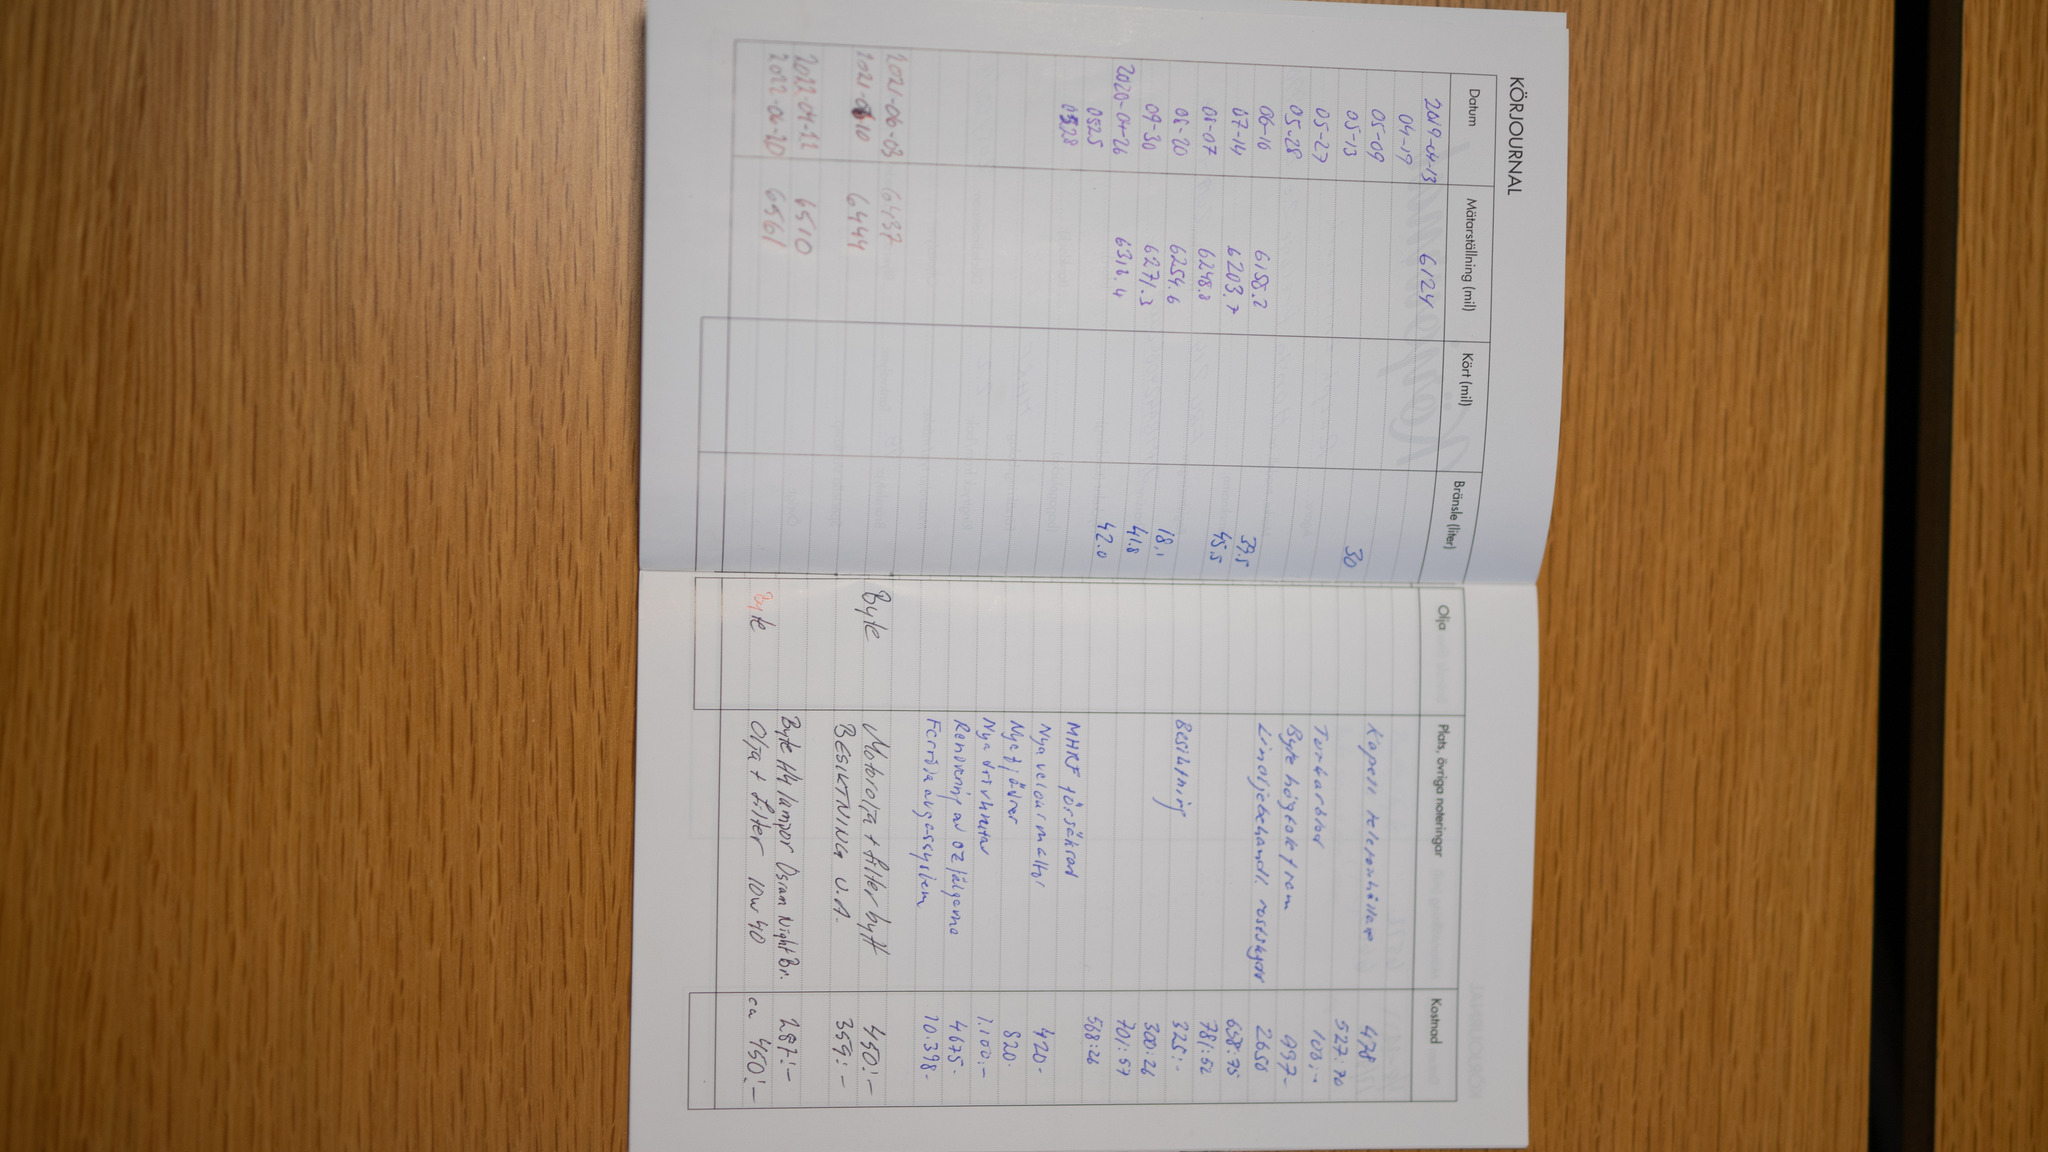 KÖRJOURNAL
Datum Mätarställning (mil) Kört (mil) Bränsle (liter) Olja Plats, övriga noteringar Kostnad
2019-04-13 6124
04-19
05-09 Kapell 478
05-13 30 527:70
05-27 108:-
05-28 Byte högtalat fram 997-
06-16 6155.2 Linoljebehandl. 2650
07-14 6203.7 39.5 658:75
08-07 6248.8 45.5 781:52
08-20 6254.6 Besiktning 325:-
09-30 6271.3 18.1 300:26
2020-04-26 41.8 701:57
0525 42.0 568:26
0528 MHRF försäkrad
Nya velourmattor 420-
Nya 820-
Nya 1.100:-
Renovering av OZ fälgarna 4675-
Ferrita avgassystem 10.398-
2021-06-03 6437 Byte Motorolja + filter bytt 450:-
6444 BESIKTNING U.A. 359:-
2022-04-22 6510 Byte H4 lampor Osram Night Br. 287:-
2022-06-20 6561 Byte Olja + filter 10W40 ca 450:-